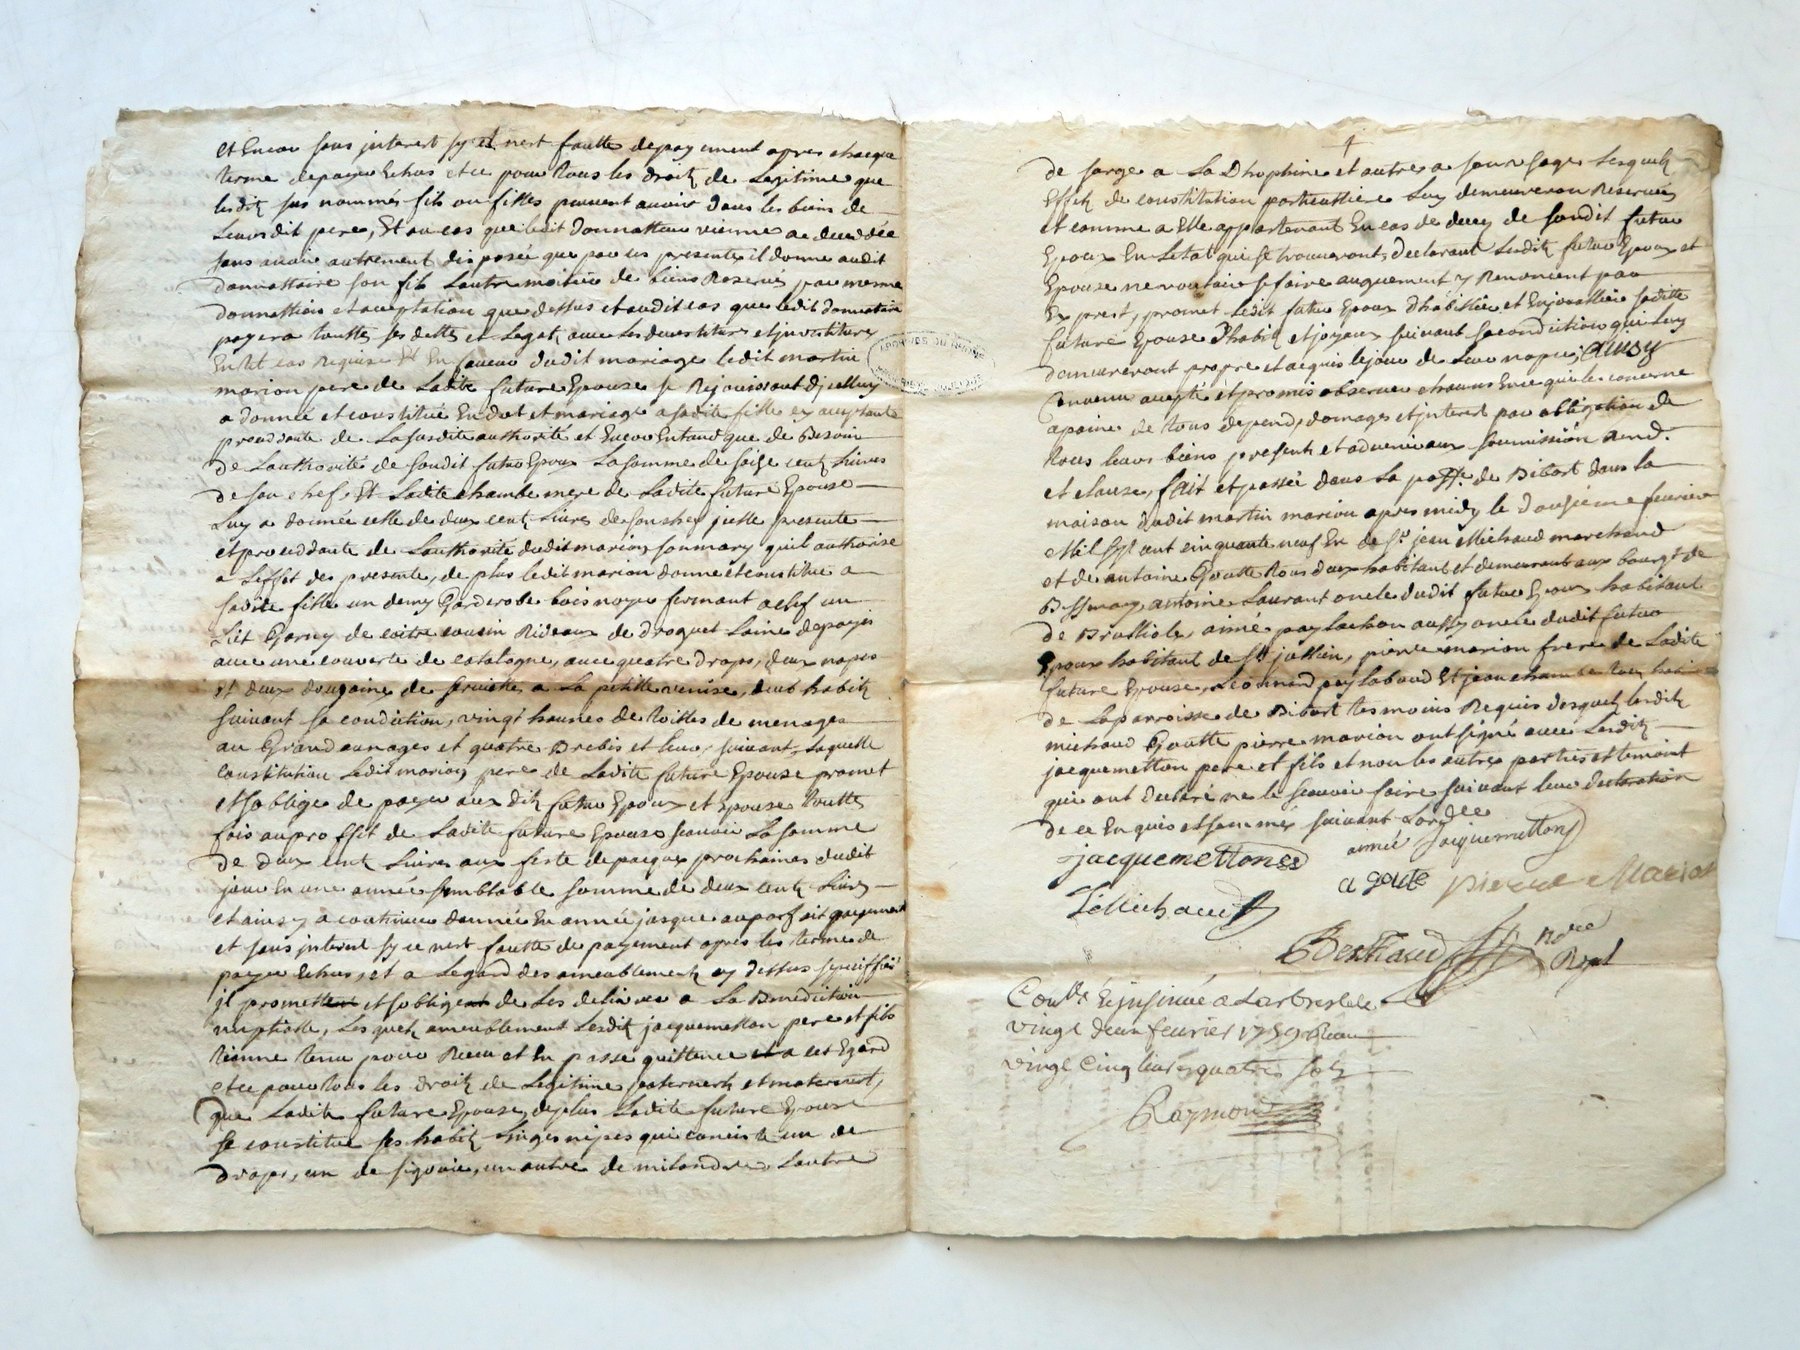 et Encor sans jnterest sy ce nest fautte de payement apres chaque
terme de payer Echus et ce pour tous les droitz de Legitime que
lesditz sus nommés fils ou filles peuvent auoir dans les biens de
Leurdit pere, Et au cas que ledit donnatteur vienne a decedée
sans auoir autrement disposée que par ces presente il donne audit
donnattaire son fils Lautre moitiée de biens Reservés pour mesme
donnattion et aceptation que dessus et audit cas que ledit donnataire
payera touttes ses dettes et Legats auec les deuestiture et jnvestiture
En tel cas Requise Et En faueur dudit mariage ledit martin
marion pere de Ladite future Epouse se Rejouissant djcelluy
a donnée et constitué En dot et mariage a sadite fille cy aceptante
proceddante de La susdite authorité et Encor Entand que de Besoin
de Lauthorité de soudit futur Epoux La somme de saise cent Liures
de son chef, Et Ladite chambe mere de Ladite future Epouse
Luy a donnée celle de deux cent Liures de son chef jcelle presente
et proceddante de Lauthorité dudit marion son mary quil authorise
a Leffet des presente, de plus ledit marion donne et constitue a
sadite fille un demy Garderobe bois noyer fermant a clef un
Lit Garny de coitre cousin Rideaux de droguet Laine depayis
auec une couuerte de catalogne, auec quatre draps, deux napes
et deux douzaine de seruiette a La petitte venise, deub habitz
suiuant sa condition, vingt haunes de toilles de menage
au Grand aunages et quatre Brebis et leur suiuant, Laquelle
constitution Ledit marion pere de Ladite future Epouse promet
et soblige de payer aux ditz futur Epoux et Epouse toutte
fois au proffit de Ladite future Epouse scauoir La somme
de deux centz Liures aux feste de paques prochaines dudit
jour En une année semblable somme de deux centz Liures
et ainsy a continuer dannée En année jusque au parfait payement
et sans jnterest sy ce nest fautte de payement apres les termes de
payer Echus, et a Legard des ameublementz cy dessus speciffiés
jl promettent et sobligent de Les deliurer a La Benediction
nuptialle, Lesquelz ameublement Lesditz jacquemetton pere et fils
tienne tenu pour Receu et En passe quittence a cet Egard
et ce pour tous les droitz de Legitime paternels et maternel,
que Ladite future Epouse, de plus Ladite future Epouse
se constitue ses habitz Linges nipes qui consiste un de
draps, un de sigovie, un autre de milandre Lautre
de sarge a La Dhophine et autres a son usage Lesquelz
Effetz de constitution particulliere Luy demeureron Reservés
et comme a Elle appartenant En cas de deces de sondit futur
Epoux En Letat qui se trouueront, declarant Lesditz futur Epoux et
Epouse ne vouloir se faire augument y Renoncent par
Expres, promet Ledit futur Epoux dhabiller et Enjouailler sadite
future Epouse Dhabitz et joyaux suiuant sa condition qui Luy
demeureront propre et acquis le jour de Leur nopce; Ainsy
Convenu acepté et promis obseruer chacuns En ce qui les concerne
a paine de tous depend, domages et jnterest par obligation de
tous leurs biens presents et aduenir aux soumission Rend.
et clause, fait et passée dans La passe. de Bibost dans la
maison dudit martin marion apres midy le douzieme feurier
Mil Sept cent cinquante neuf En de sr. jean Michaud marchand
et de antoine Goutte tous deux habitant et demeurant aux bourgt de
Bessenay antoine Laurant oncle dudit futur Epoux habitant
de Brussiole, aimé paylachon aussy oncle dudit futur
Epoux habitant de St. jullien, pierre marion frere de Ladite
future Epouse, Leonnard pey Labaud Et jean chambe tous
de Laparroisse de Bibost tesmoins Requis desquelz Lesditz
michaud Goutte pierre marion ont signé auec Lesditz
jacquemetton pere et fils et non les autres parties et temoint
qui ont declaré ne le scauoir faire suiuant leur declaration
de ce Enquis et sommés suiuant Lordce
jacquemetton aimé Jacquemetton
a goute pierre Marion
J Michaud
Berthaud Nore Royal
Conllé & jnsinué a Larbresle le
vingt deux feurier 1759 Receu
vingt Cinq liures quatre sols
Raymond